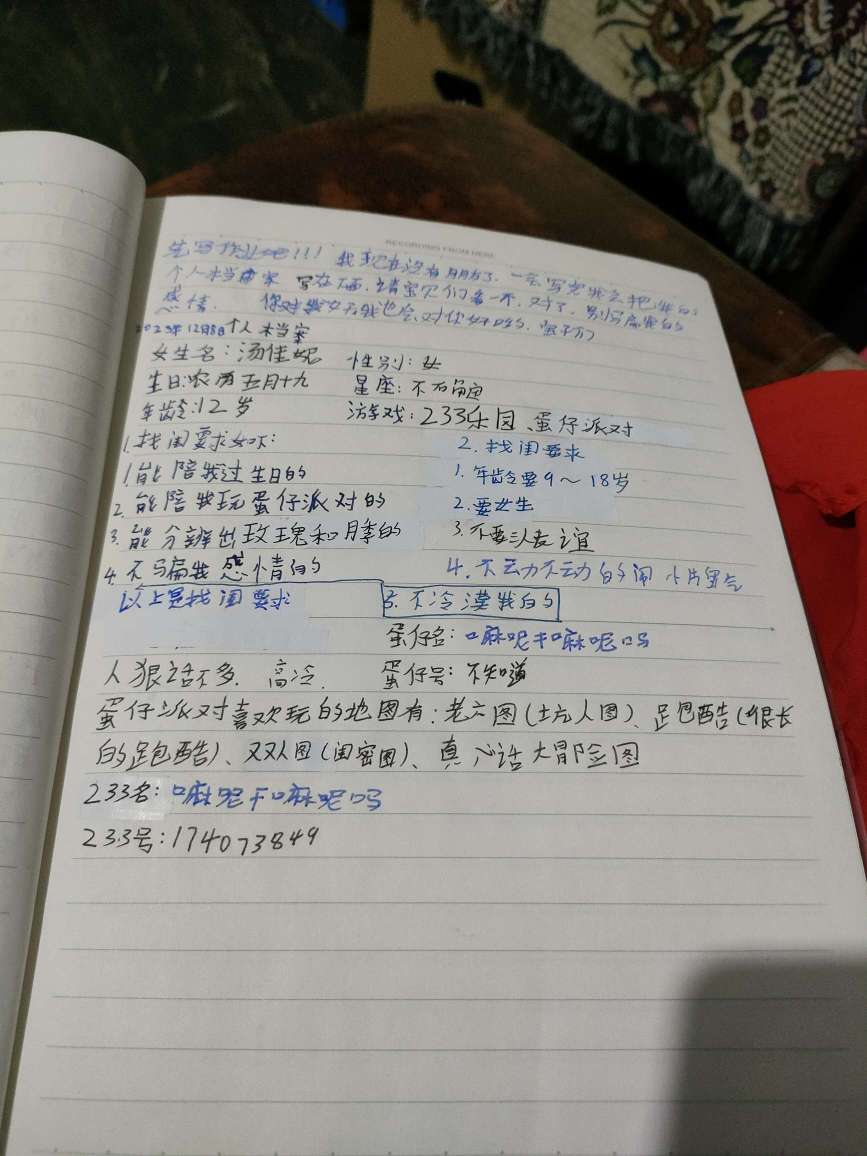 RECORDING FROM HERE
先写作业吧!!! 我现在没有朋友了,一会写完我会把我的
个人本当案 写在下面,请宝贝们看一下,对了,别骗我的
感情, 你对我好我也会对你好的,
2023年12月8日个人本当案
女生名:汤佳妮 性别:女
生日:农历五月十九 星座:不不角鱼
年龄:12岁 游戏:233乐园、蛋仔派对
1.找闺要求如下: 2.找闺要求
1.能陪我过生日的 1.年龄要9~18岁
2.能陪我玩蛋仔派对的 2.要女生
3.能分辨出玫瑰和月季的 3.不要认友谊
4.不骗我感情的 4.不云力不云力的闹小片脾气
以上是找闺要求 5.不冷漠我的
蛋仔名:嘛呢干嘛呢吗
人狠话不多,高冷. 蛋仔号:不知道
蛋仔派对喜欢玩的地图有:老六图(坑人图)、跑酷(很长
的跑酷)、双人图(闺密图)、真心话大冒险图
233名:嘛呢干嘛呢吗
233号:174073849